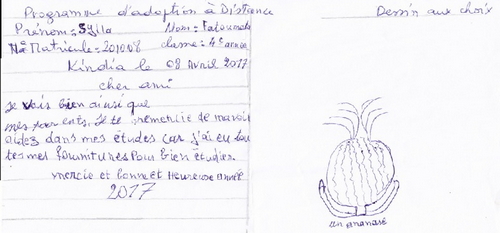 Programme d'adoption à Distance
Dessin aux choix
Prénom = Sylla Nom = Fatoumata
N° Matricule = 201008 classe = 4e année
Kindia le 08 Avril 2017
cher ami
Je vais bien ainsi que
mes parents. Je te remercie de m'avoir
aidez dans mes études car j'ai eu tou
tes mes fournitures Pour bien étudier.
mercie et bonne et Heureuse année
2017
un ananase